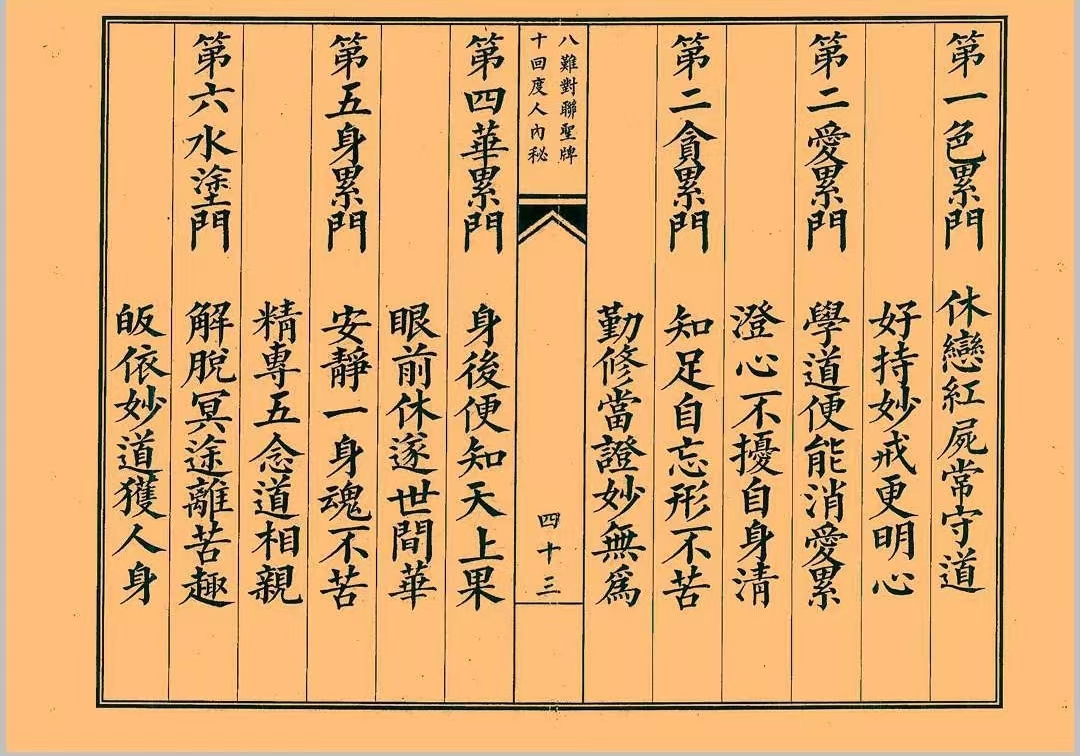 第一色累門　休戀紅屍常守道
好持妙戒更明心
第二愛累門　學道便能消愛累
澄心不擾自身清
第二貪累門　知足自忘形不苦
勤修當證妙無爲
八難對聯聖牌
十回度人內秘
四十三
第四華累門　身後便知天上果
眼前休逐世間華
第五身累門　安靜一身魂不苦
精專五念道相親
第六水塗門　解脫冥途離苦趣
皈依妙道獲人身